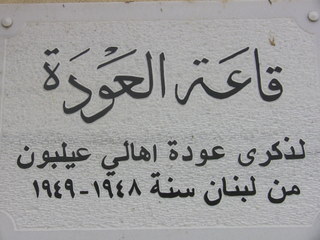 قَاعَة العَوْدَة
لذكرى عودة اهالي عيلبون
من لبنان سنة ١٩٤٨-١٩٤٩